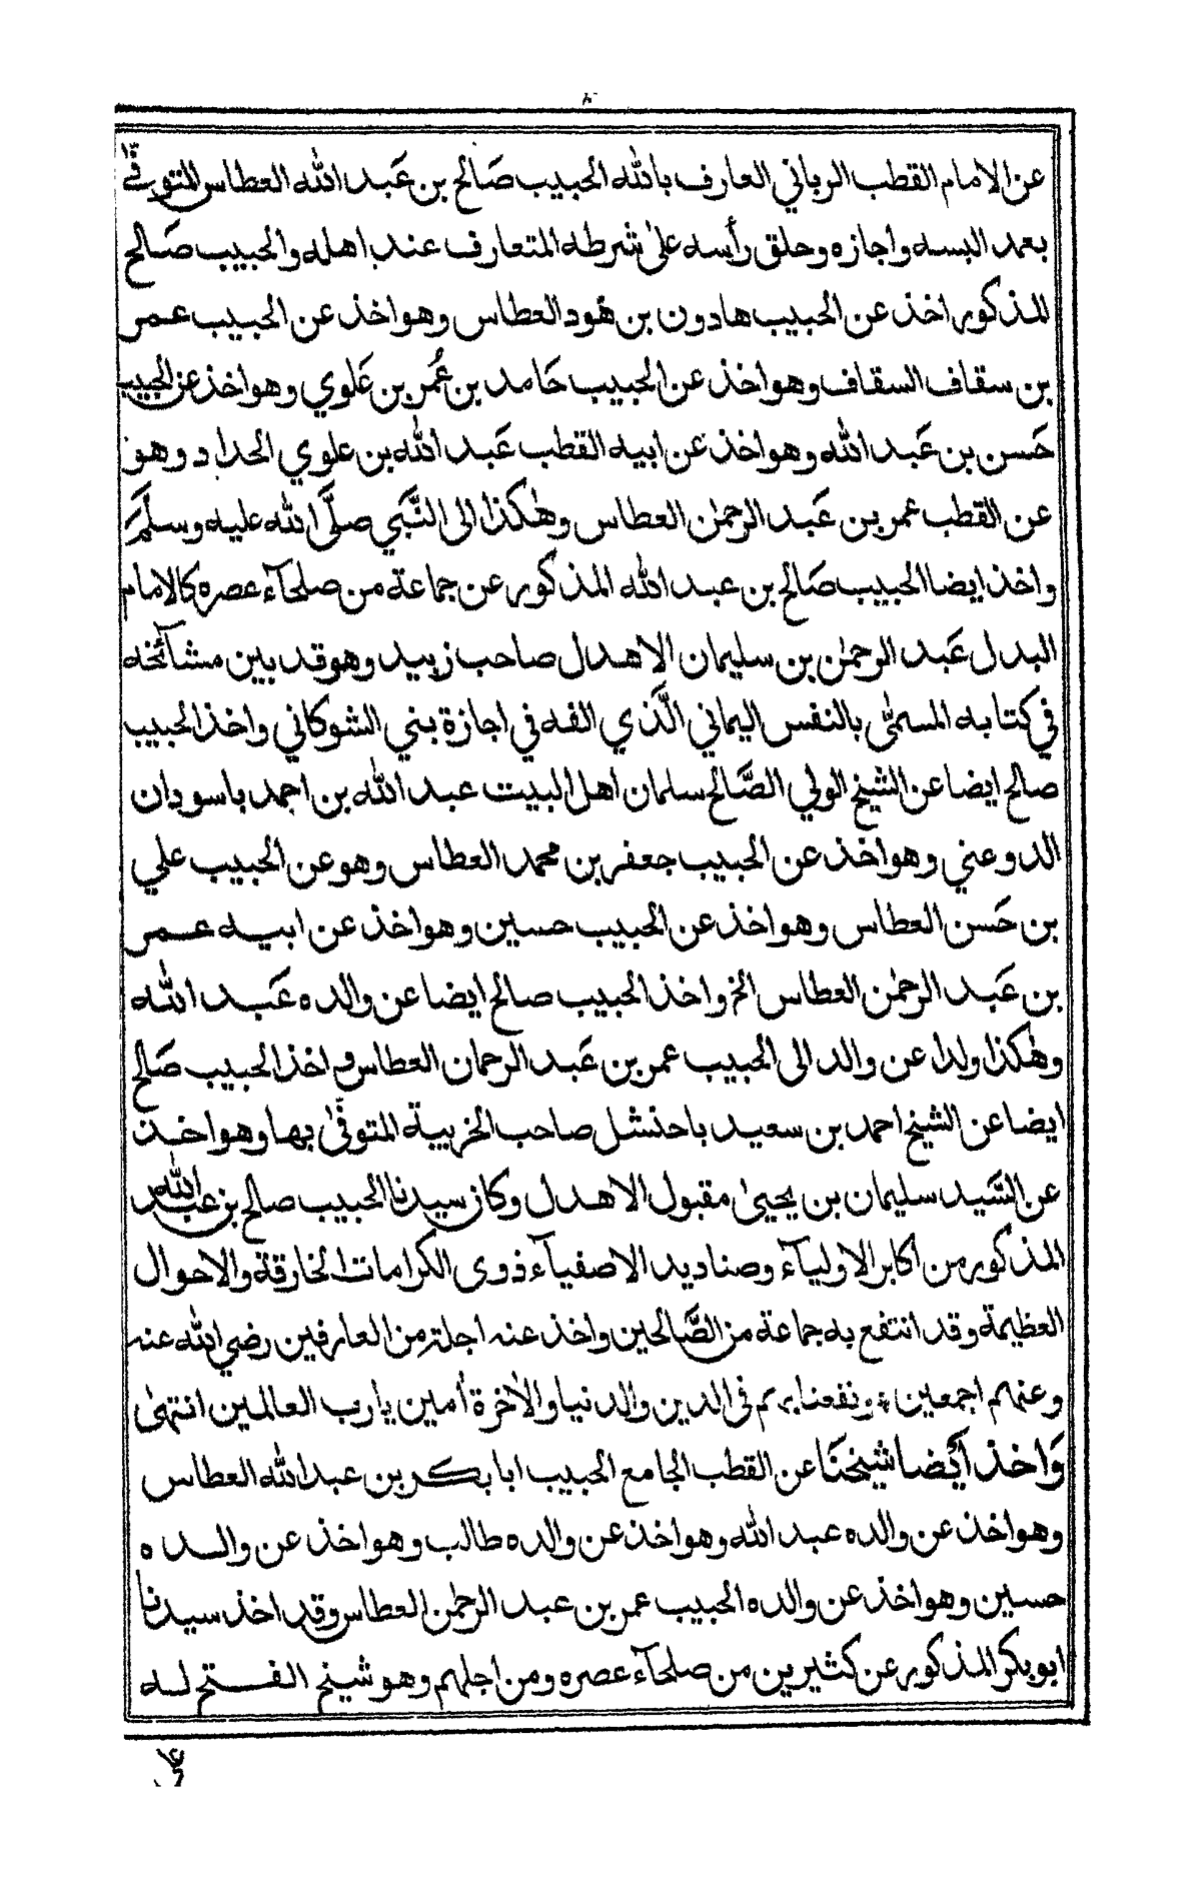 عن الامام القطب الرباني العارف بالله الحبيب صَالح بن عَبد الله العطاس المتوفّٰى
بعمد البسه واجازه وحلق رأسه علىٰ شرطه المتعارف عند اهله والحبيب صَالح
المذكور اخذ عن الحبيب هادون بن هُود العطاس وهو اخذ عن الحبيب عمر
بن سقاف السقاف وهو اخذ عن الحبيب حَامد بن عُمر بن عَلوي وهو اخذ عن الحبيب
حَسن بن عَبد الله وهو اخذ عن ابيه القطب عَبد الله بن علوي الحداد وهو
عن القطب عمر بن عَبد الرحمٰن العطاس وهٰكذا الى النَّبي صلَّى الله عليه وسلَّمَ
واخذ ايضا الحبيب صَالح بن عبد الله المذكور عن جماعة من صلحآء عصره كالامام
البدل عَبد الرحمٰن بن سليمان الاهدل صاحب زبيد وهو قد بين مشآئخه
في كتابه المسمّٰى بالنفس اليماني الَّذي الفه في اجازة بني الشوكاني واخذ الحبيب
صالح ايضا عن الشيخ الولي الصَّالح سلمان اهل البيت عبد الله بن احمد باسودان
الدوعني وهو اخذ عن الحبيب جعفر بن محمد العطاس وهو عن الحبيب علي
بن حَسن العطاس وهو اخذ عن الحبيب حسين وهو اخذ عن ابيه عمر
بن عَبد الرحمٰن العطاس الخ واخذ الحبيب صالح ايضا عن والده عَبد الله
وهٰكذا ولدا عن والد الى الحبيب عمر بن عَبد الرحمان العطاس واخذ الحبيب صَالح
ايضا عن الشيخ احمد بن سعيد باحنشل صاحب الخريبة المتوفّٰى بها وهو اخذ
عن السَّيد سليمان بن يحيىٰ مقبول الاهدل وكان سيدنا الحبيب صالح بن عبد الله
المذكور من اكابر الاوليآء وصناديد الاصفيآء ذوى الكرامات الخارقة والاحوال
العظيمة وقد انتفع به جماعة من الصَّالحين واخذ عنه اجلة من العارفين رضي الله عنه
وعنهم اجمعين ؛ ونفعنا بهم فى الدين والدنيا والاٰخرة أمين يا رب العالمين انتهىٰ
وَاخذ أيضا شيخنَا عن القطب الجامع الحبيب ابا بكر بن عبد الله العطاس
وهو اخذ عن والده عبد الله وهو اخذ عن والده طالب وهو اخذ عن والده
حسين وهو اخذ عن والده الحبيب عمر بن عبد الرحمٰن العطاس وقد اخذ سيدنا
ابو بكر المذكور عن كثيرين من صلحآء عصره ومن اجلهم وهو شيخ الفتح له